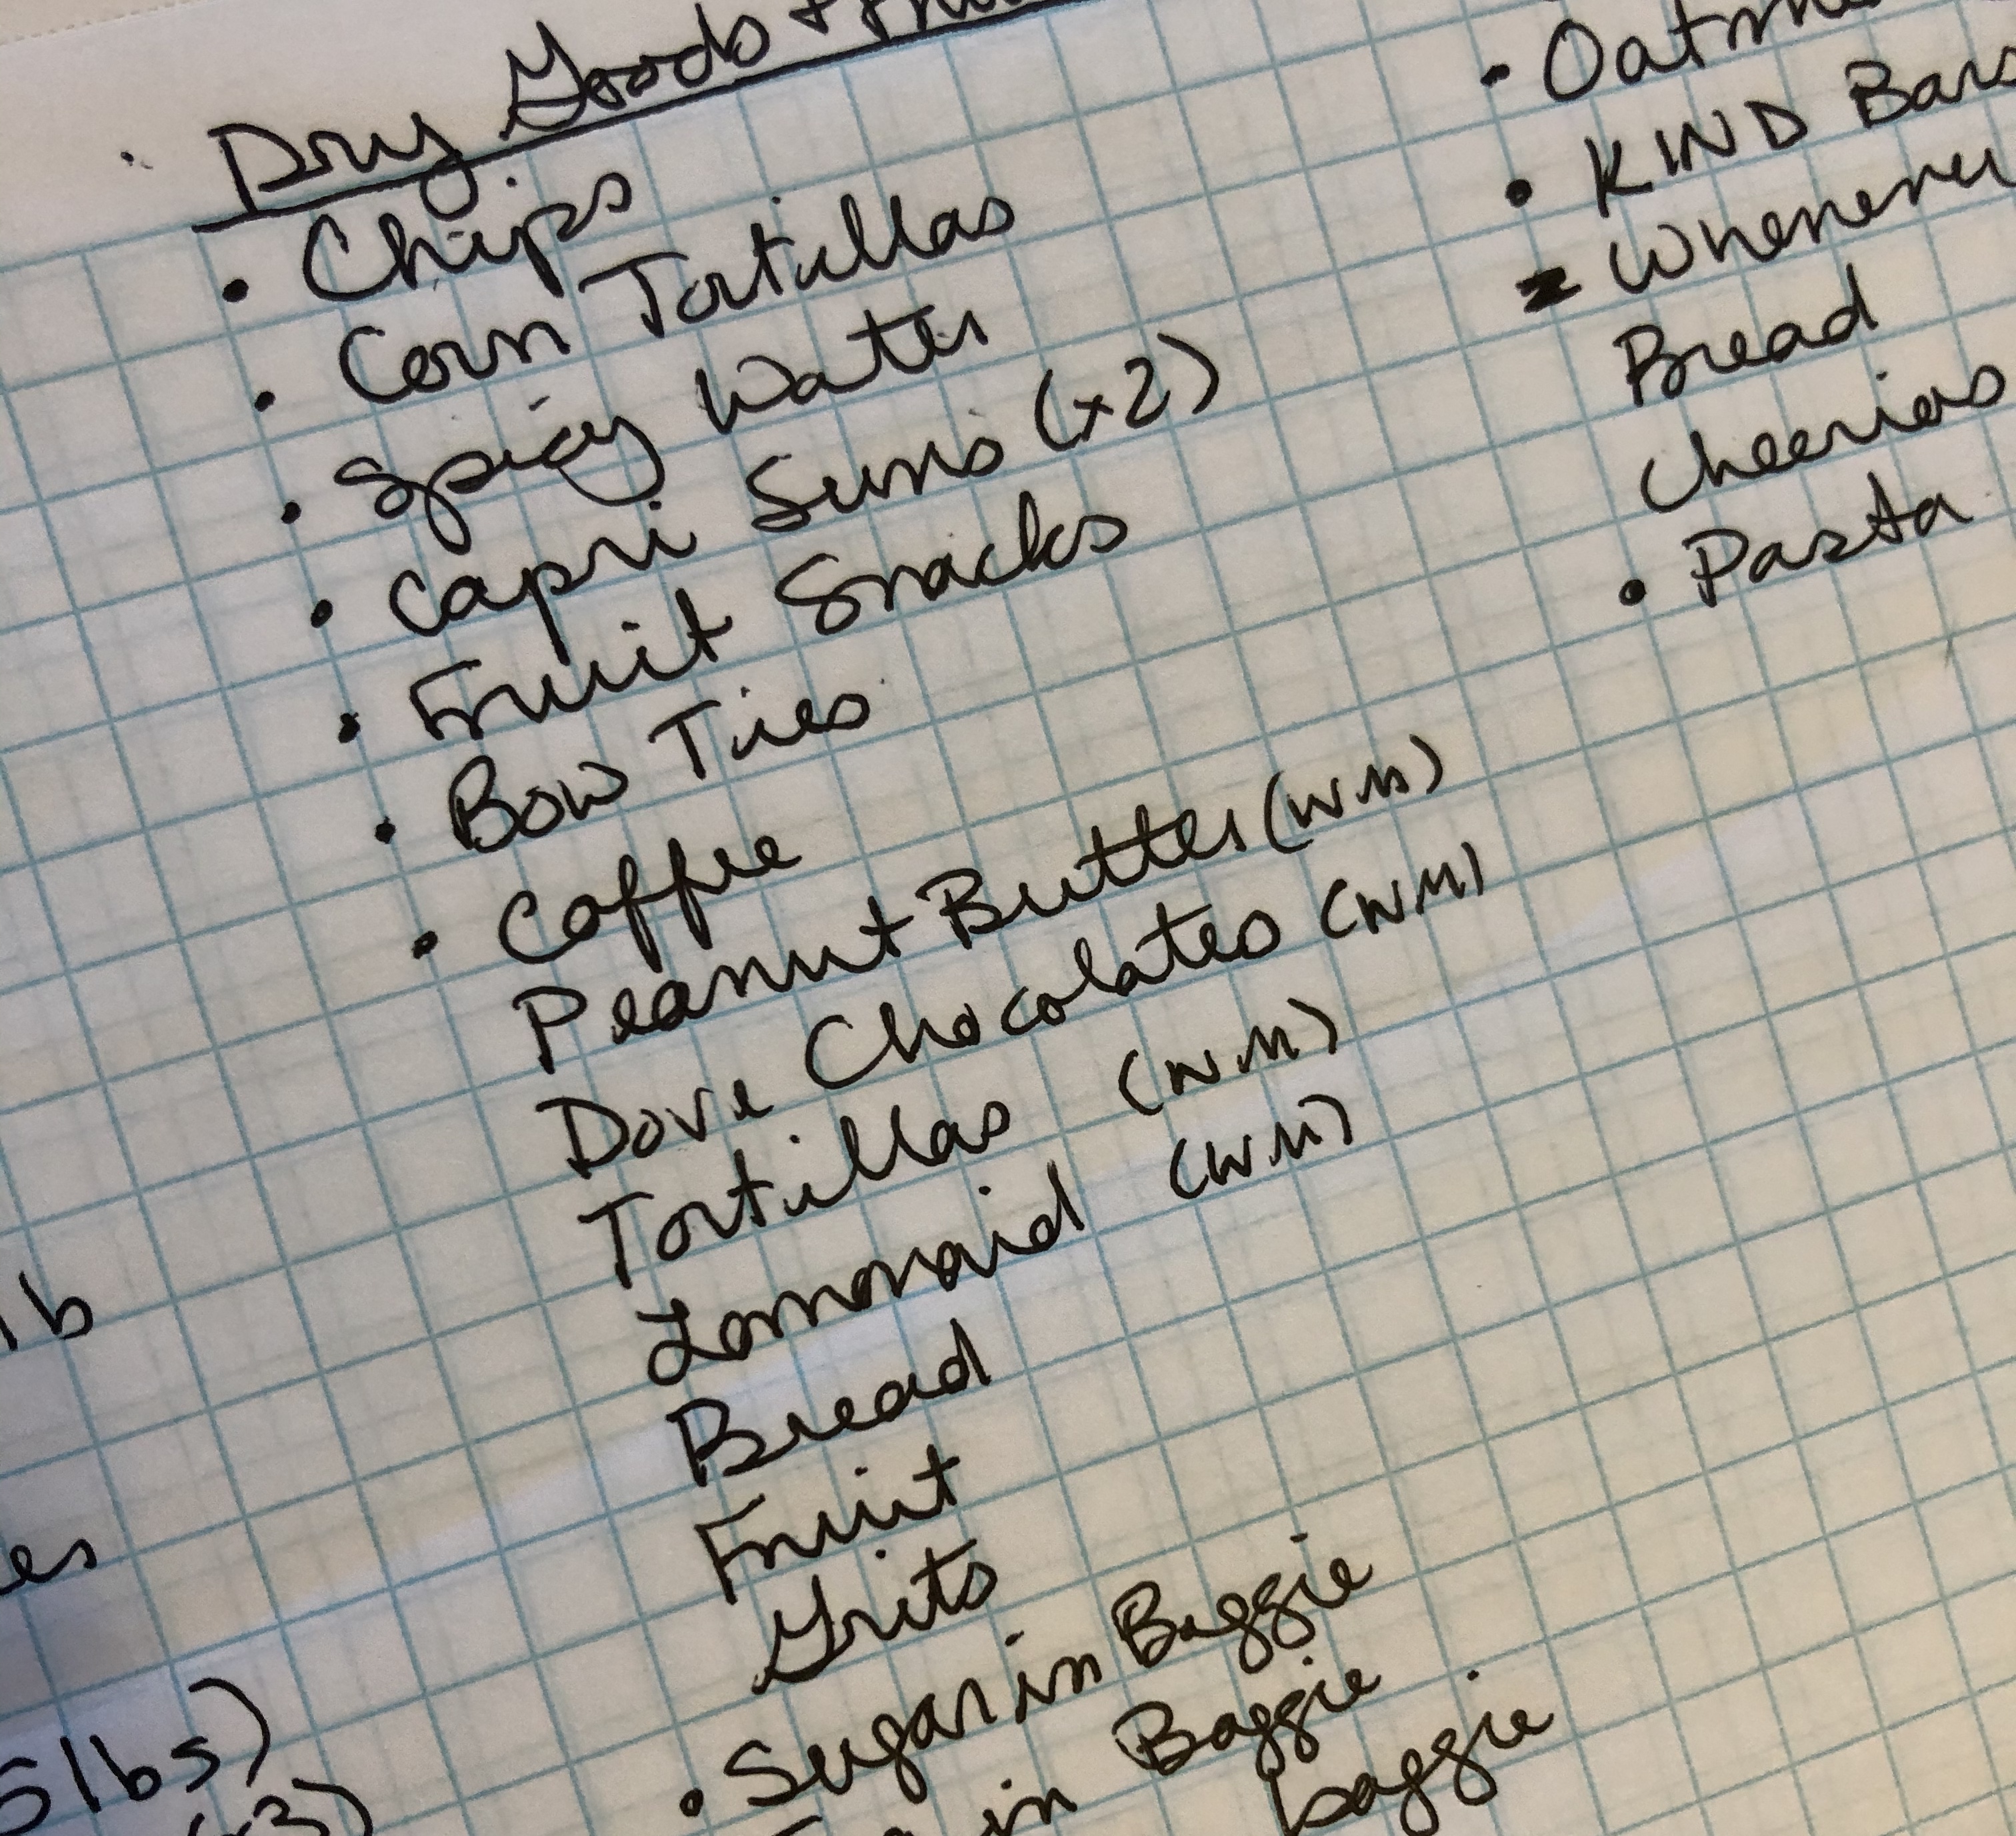 Dry Goods +
• Chips
• Corn Tortillas
• Spicy Water
• Capri Suns (x2)
• Fruit Snacks
• Bow Ties
• Coffee
Peanut Butter (WM)
Dove Chocolates (WM)
Tortillas (WM)
Lemonaid (WM)
Bread
Fruit
Grits
• Sugar in Baggie
in Baggie
baggie
• KIND Bars
Bread
Cheerios
• Pasta
lb
5lbs)